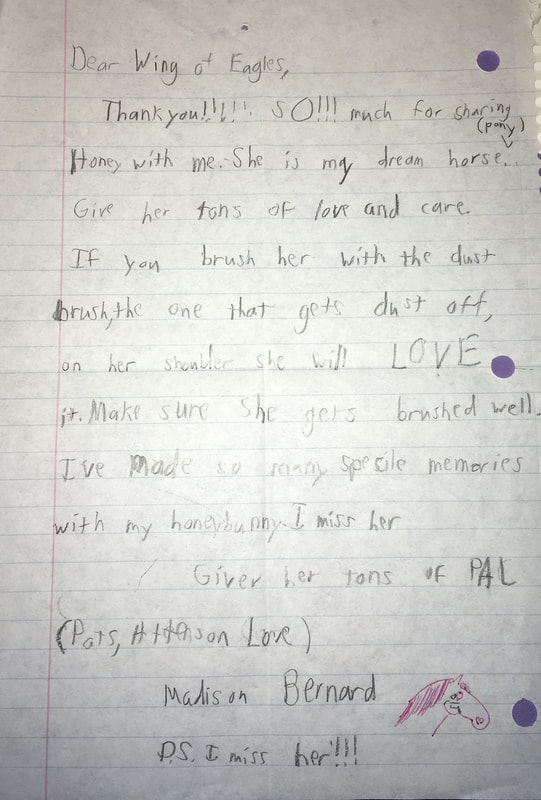 Dear Wing of Eagles,
Thank you!!!!!! SO!!! much for sharing
(pony)
Honey with me. She is my dream horse.
Give her tons of love and care.
If you brush her with the dust
brush, the one that gets dust off,
on her shoulder she will LOVE
it. Make sure She gets brushed well.
I've made so many specile memories
with my honeybunny. I miss her
Giver her tons of PAL
(Pats, Attenson Love)
Madison Bernard
P.S. I miss her!!!!